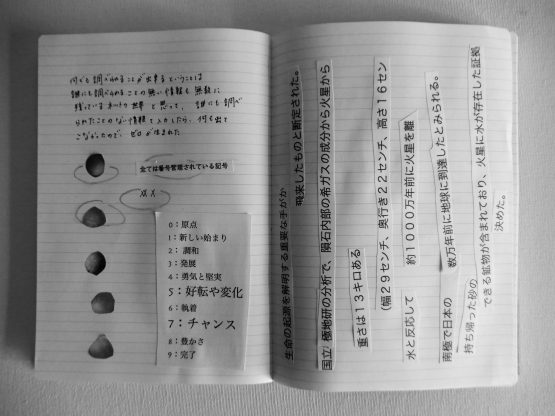 何でも調べられることが出来るということは
誰にも調べられることの無い情報も無数に
残っているネットの世界と思って、誰にも調べ
られたことのない情報を入力したら、何も出て
こなかったので、ゼロが生まれた
全ては番号管理されている記号
0：原点
1：新しい始まり
2：調和
3：発展
4：勇気と堅実
5：好転や変化
6：執着
7：チャンス
8：豊かさ
9：完了
生命の起源を解明する重要な手がか
飛来したものと断定された。
国立極地研の分析で、隕石内部の希ガスの成分から火星から
重さは13キロある
（幅29センチ、奥行き22センチ、高さ16セン
水と反応して
約1000万年前に火星を離
南極で日本の
数万年前に地球に到達したとみられる。
持ち帰った砂の
できる鉱物が含まれており、火星に水が存在した証拠
決めた。